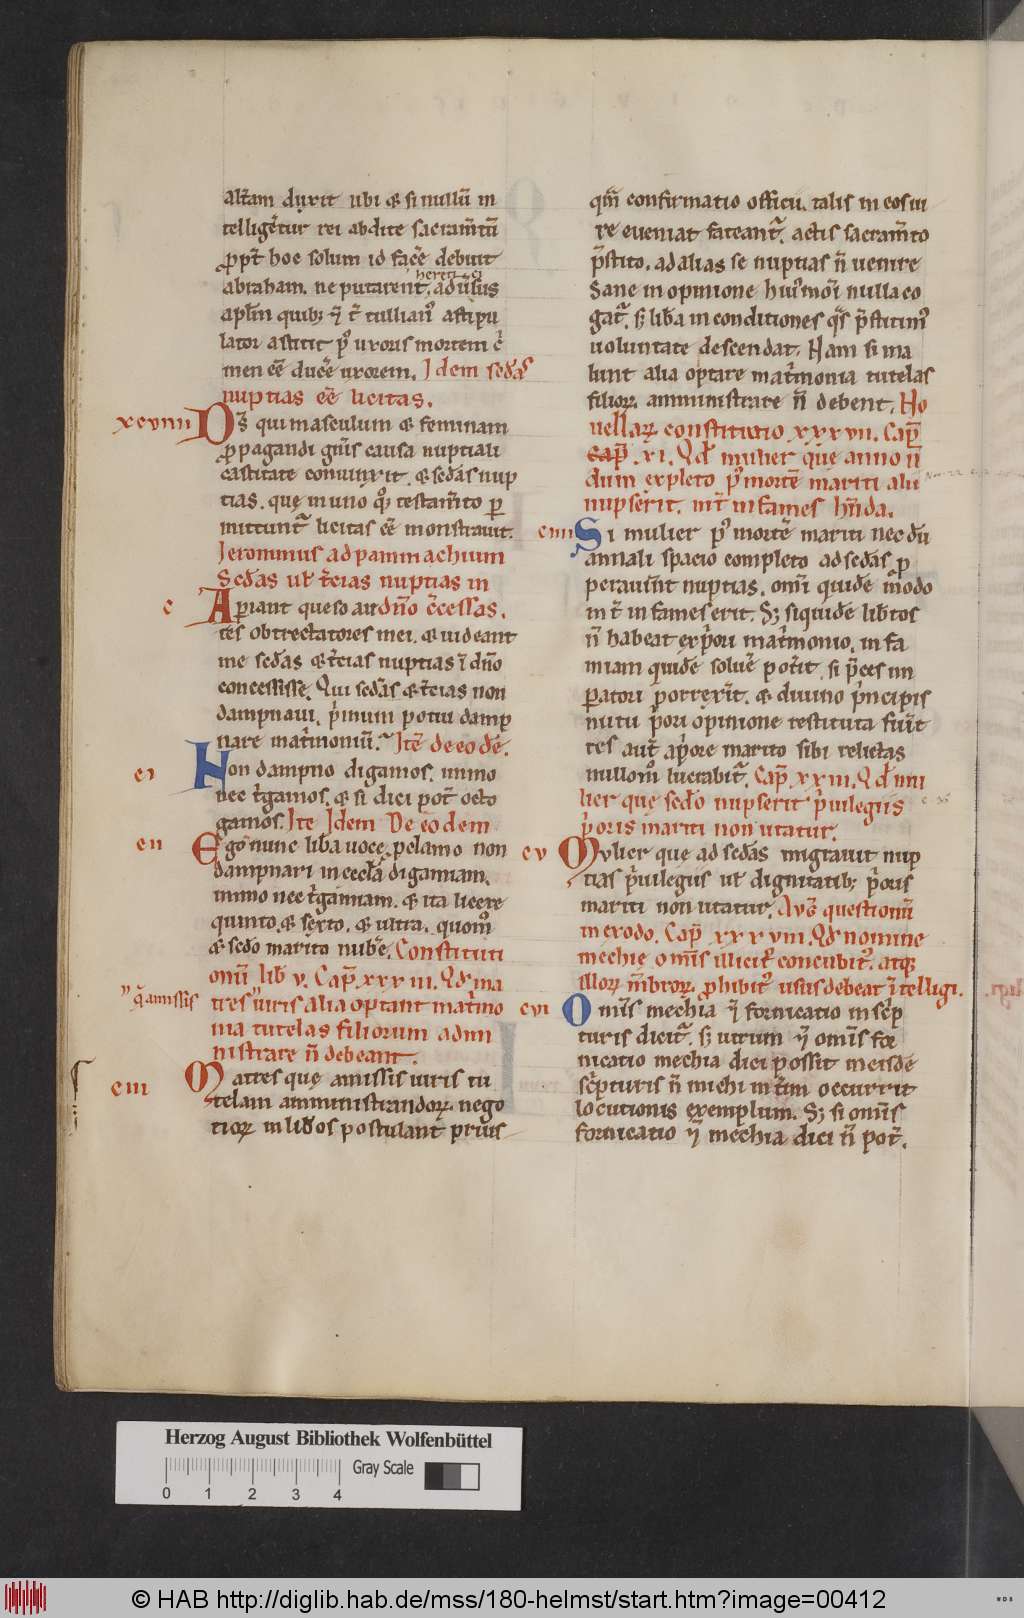 alt̃am duxit ubi & si nullũ in
telligẽtur rei abdite sacram̃tũ
ꝓpt̃ hoc solum id facẽ debuit
heret ci
abraham. ne putarent adũsus
apl̃m quib; ẏ t̃ tulliani᷒ astipu
lator astitit p᷒ uxoris mortem c̓
men eẽ ducẽ uxorem. Idem sed̃as
nuptias eẽ licitas.
xcviiii Ds̃ qui masculum & feminam
ꝓpagandi gñis causa nuptiali
castitate coniunxit. & sed̃as nup
tias. quę in uno q᷒; testam̃to ꝑ
mittunt᷑ licitas eẽ monstrauit.
Jeronimus ad pammachium
Sed̃as ut̃ t̃cias nuptias in
c Apiant queso aur dño c̃cessas.
tes obtrectatores mei. & uideant
me sed̃as & t̃cias nuptias ĩ dño
concessisse. Qui sed̃as & t̃cias non
dampnaui. p̓mum potui damp
nare mat̓moniũ. Itẽ de eodẽ.
ci Non dampno digamos. immo
nec t̓gamos. & si dici pot̃ octo
gamos. Itẽ Idem De eodem
cii Ego nunc lib̃a uoce p̱clamo non
dampnari in eccl̃a digamiam.
immo nec t̓gamiam. & ita licere
quinto. & sexto. & ultra. quom᷒
& sed̃o marito nubẽ. Constituti
onũ lib̃ v. Cap̃ xxxiii. Qd̃ ma
"q̃ amissis
tres "uiris alia optant mat̓mo
nia tutelas filiorum admi
nistrare ñ debeant.
ciii Matres quę amissis uiris tu
telam amministrandoꝝ nego
tioꝝ in lib̃os postulant prius
qm̃ confirmatio officii. talis in eos iu
re eueniat fateant᷑. actis sacram̃to
p̃stito. ad alias se nuptias ñ uenire
Sane in opinione hui᷒moi᷒ nulla co
gat᷑. s; lib̃a in conditiones qs̃ p̃stitim᷒
uoluntate descendat. Nam si ma
lunt alia optare mat̓monia tutelas
filioꝝ amministrare ñ debent. No
uellaꝝ constitutio xxxvii. Cap̃
cap̃. xi. Qd̃ mulier quę anno ñ
dum expleto p᷒ mortẽ mariti alii
nupserit. int̃ infames hñda.
ciiii Si mulier p᷒ mortẽ mariti nec dũ
annali spacio completo ad sed̃as ꝓ
perauĩt nuptias. omĩ quidẽ m᷒do
int̃ infames erit. S; siquidẽ lib̃tos
ñ habeat ex p̓ori mat̓monio. infa
miam quidẽ soluẽ pot̃it. si p̃ces im
ꝑatori porrexĩt. & diuino p̓ncipis
nutu p̓ori opinione restituta fuĩt
res aut̃ a p̓ore marito sibi relictas
nullom᷒ lucrabit᷑. Cap̃ xxiii. Qd̃ mu
lier quę sed̃o nupserit p̓uilegiis
p̓oris mariti non utatur.
cv Mulier quę ad sed̃as migrauit nup
tias p̓uilegiis ut̃ dignitatib; p̓oris
mariti non utatur. Avḡ questionũ
in exodo. Cap̃ xxxviii. Qd̃ nomine
mechię omĩs illicit᷒ concubit᷒. atq;
illoꝝ m̃broꝝ ꝓhibit᷒ usus debeat ĩtelligi.
cvi Omĩs mechia ẏ fornicatio in sc̓p
turis dicit᷑. s; utrum ẏ omĩs for
nicatio mechia dici possit in eisdẽ
sc̓pturis ñ michi int̃im occurrit
locutionis exemplum. S; si omĩs
fornicatio ẏ mechia dici ñ pot̃.
Herzog August Bibliothek Wolfenbüttel
Gray Scale
0 1 2 3 4
© HAB http://diglib.hab.de/mss/180-helmst/start.htm?image=00412